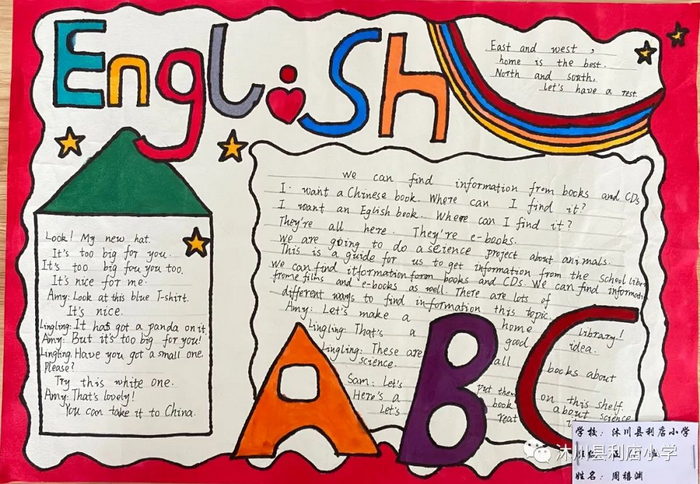 English
East and west,
home is the best.
North and south,
Let's have a rest.
Look! My new hat.
It's too big for you.
It's too big fou you too.
It's nice for me.
Amy: Look at this blue T-shirt.
It's nice.
Lingling: It has got a panda on it.
Amy: But it's too big for you!
Lingling: Have you got a small one
Please?
Try this white one.
Amy: That's lovely!
You can take it to China.
we can find information from books and CDs
I want a Chinese book. Where can I find it?
I want an Eglish book. Where can I find it?
They're all here. They're e-books.
we are going to do a science project about animals.
This is a guide for us to get information from the School
we can find itformation form books and CDs We can find
frome films and e-books as well. There are lots of
different ways to find information this topic.
Amy: Let's make a home library!
Lingling: That's a good idea.
Lingling: These are all books about
science.
Sam: Let's put them on this shelf
Here's a book about science
Let's
ABC
学校：沐川县利店小学
姓名：周禧渊
沐川县利店小学